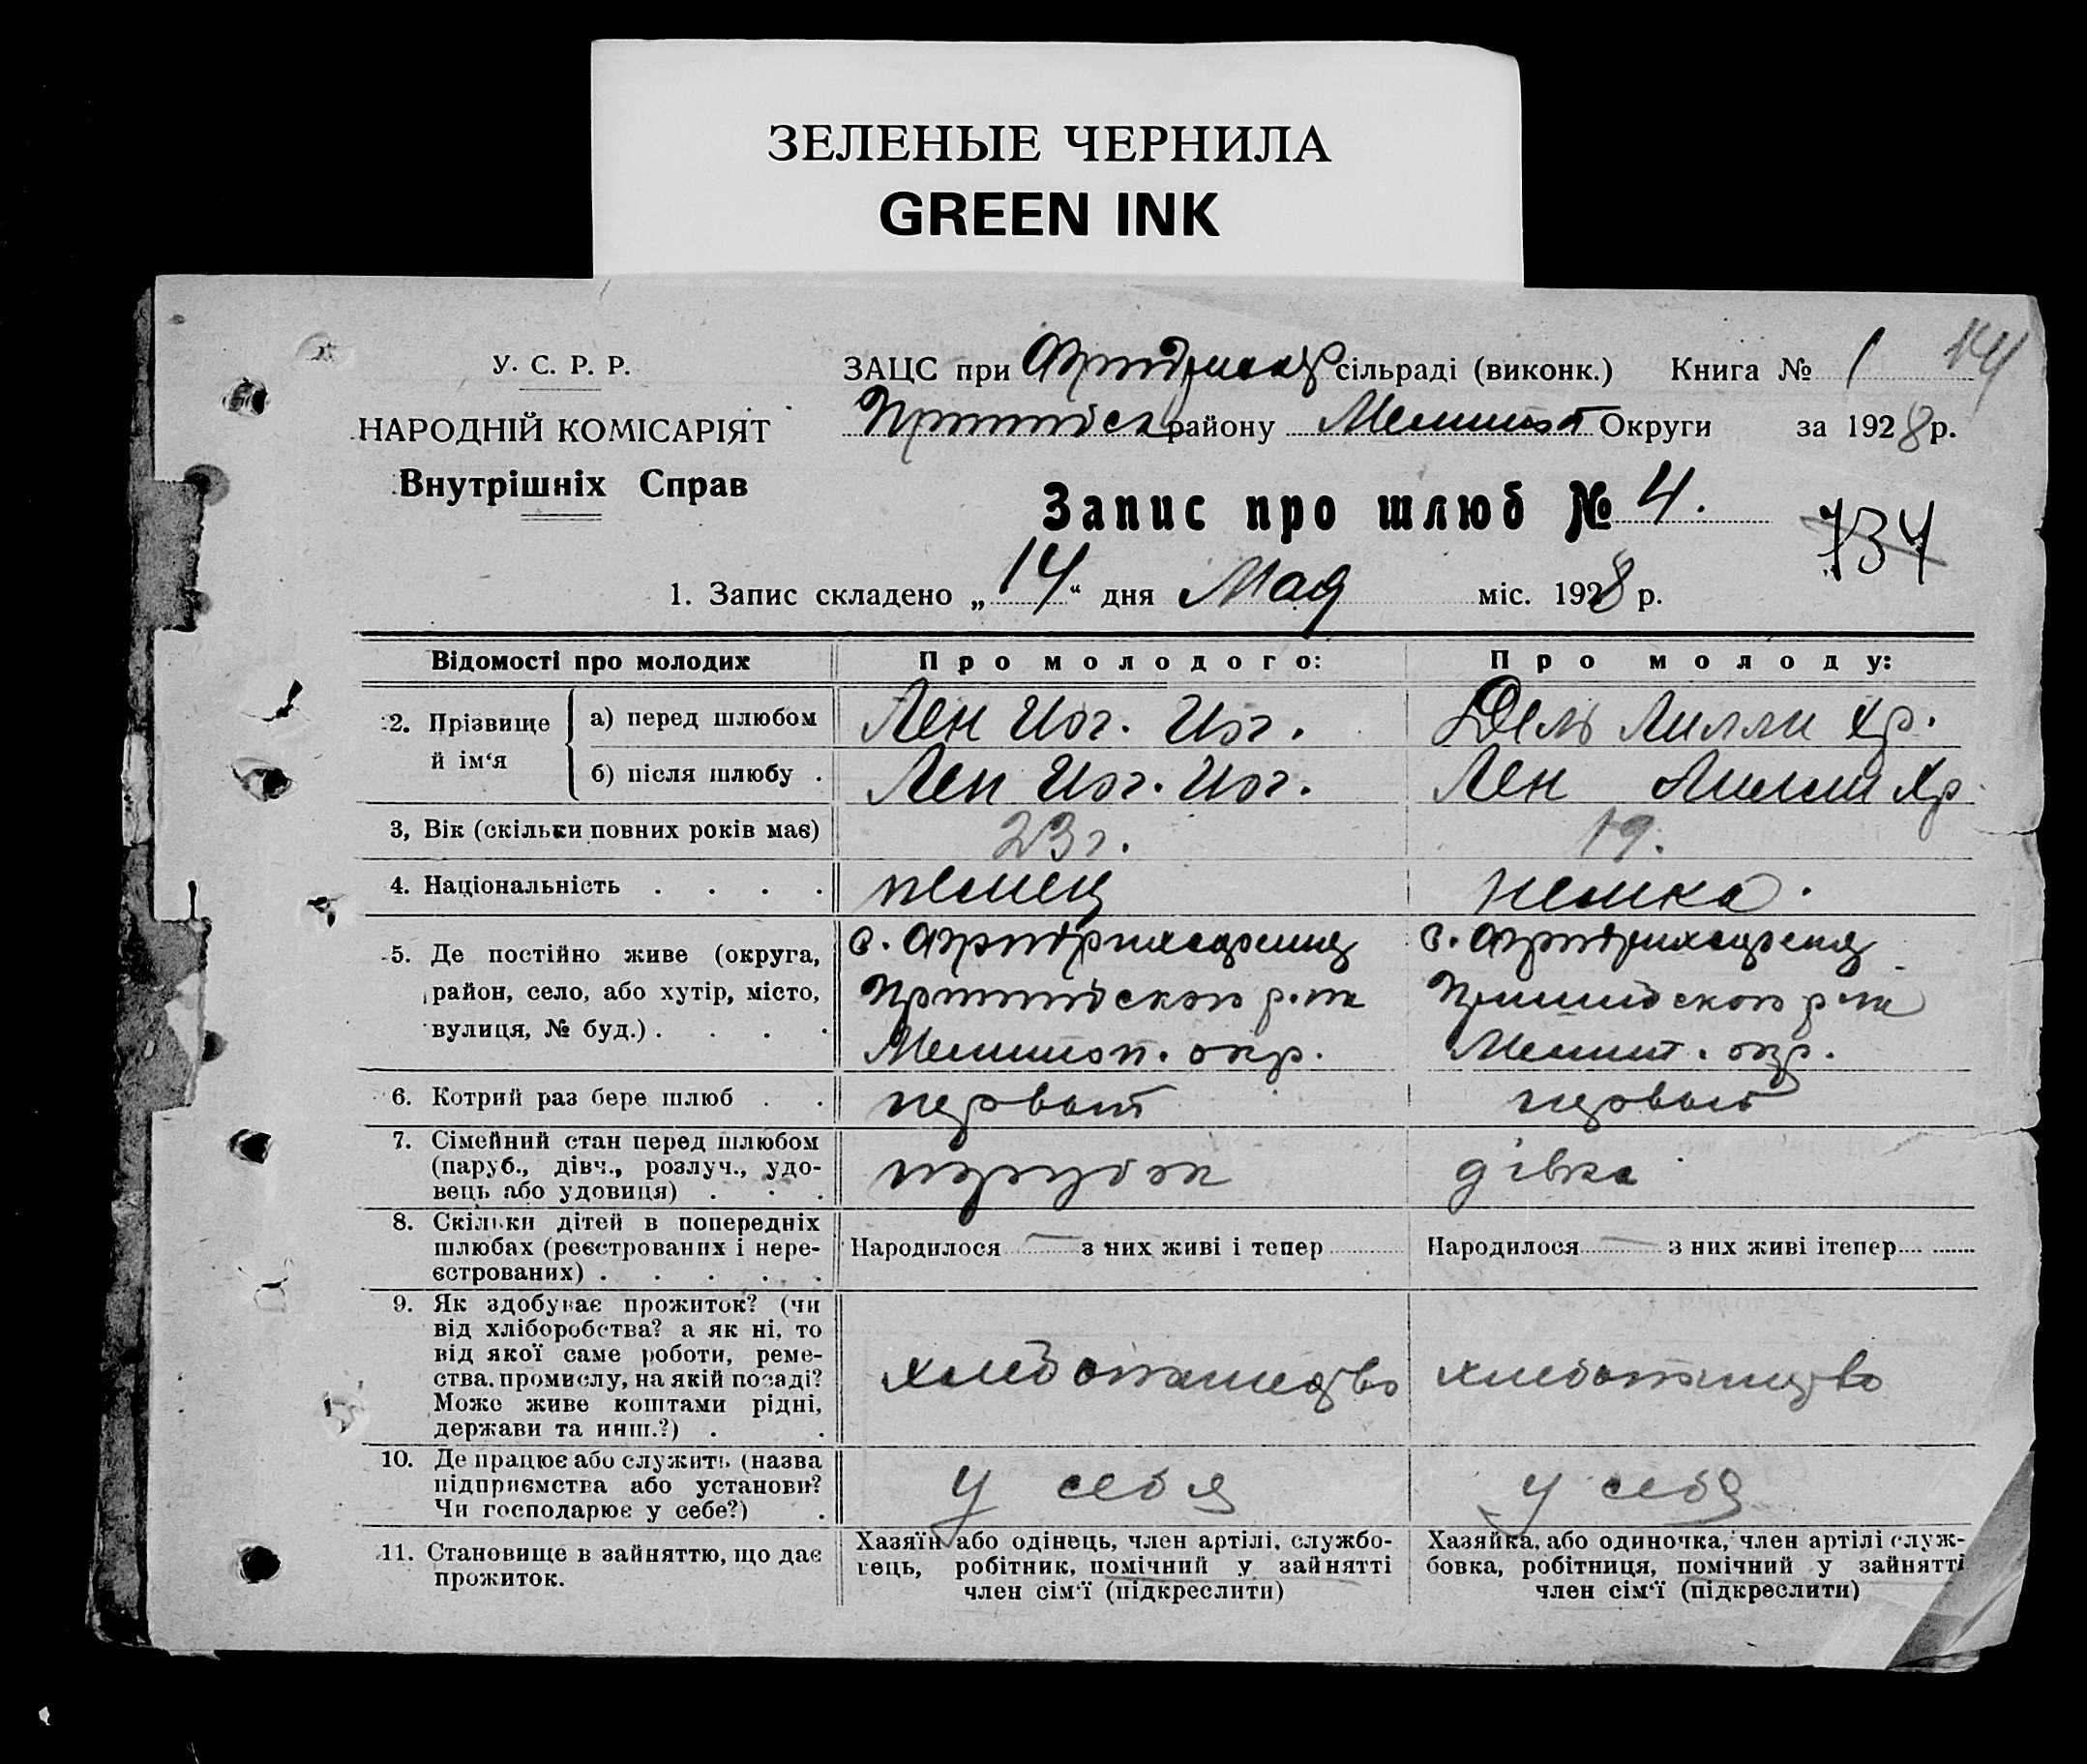 ЗЕЛЕНЫЕ ЧЕРНИЛА
GREEN INK
14
У. С. Р. Р.
НАРОДНІЙ КОМІСАРІЯТ
Внутрішніх Справ
ЗАЦС при сільраді (виконк.) Книга № 1
району Округи за 1928 р.
Запис про шлюб № 4.
734
1. Запис складено „14“ дня Мая міс. 1928 р.
Відомості про молодих
Про молодого:
Про молоду:
2. Прізвище й ім‘я
а) перед шлюбом
Лен Иог. Иог.
Дель Лилли Хр.
б) після шлюбу .
Лен Иог. Иог.
Лен Лилли Хр
3, Вік (скільки повних років має)
23 г.
19.
4. Національність . . . .
немец
немка.
5. Де постійно живе (округа,
район, село, або хутір, місто,
вулиця, № буд.) . . . .
с.
Пришибского р-на
Мелитоп. окр.
с.
Пришибского р-на
Мелит. окр.
6. Котрий раз бере шлюб . .
первый
первый
7. Сімейний стан перед шлюбом
(паруб., дівч., розлуч., удо-
вець або удовиця) . . .
парубок
дівка
8. Скільки дітей в попередніх
шлюбах (реєстрованих і нере-
єстрованих) . . . . .
Народилося — з них живі і тепер
Народилося — з них живі ітепер
9. Як здобуває прожиток? (чи
від хліборобства? а як ні, то
від якої саме роботи, реме-
ства, промислу, на якій посаді?
Може живе коштами рідні,
держави та инш.?) . .
хлебопашество
хлебопашество
10. Де працює або служить (назва
підприємства або установи?
Чи господарює у себе?) .
у себя
у себя
11. Становище в зайняттю, що дає
прожиток.
Хазяїн або одінець, член артілі, службо-
вець, робітник, помічний у зайнятті
член сім‘ї (підкреслити)
Хазяйка, або одиночка, член артілі служ-
бовка, робітниця, помічний у зайнятті
член сім‘ї (підкреслити)